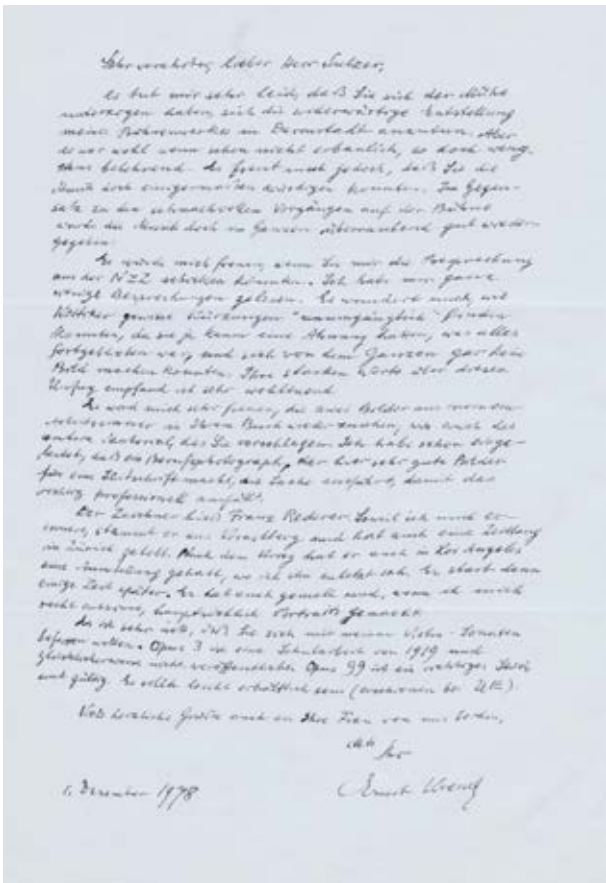 Sehr verehrter, lieber Herr Sulzer,
es tut mir sehr leid, daß Sie sich der Mühe
unterzogen haben, sich die widerwärtige Entstellung
meines Bühnenwerkes in Darmstadt anzutun. Aber
es war wohl wenn schon nicht erbaulich, so doch wenig-
stens belehrend. Es freut mich jedoch, daß Sie die
Musik doch einigermaßen würdigen konnten. Im Gegen-
satz zu den schmachvollen Vorgängen auf der Bühne
wurde die Musik doch im Ganzen überraschend gut wieder-
gegeben.
Es würde mich freuen, wenn Sie mir die Besprechung
aus der NZZ schicken könnten. Ich habe nur ganz
wenige Besprechungen gelesen. Es wundert mich, wie
Kritiker gewisse Kürzungen "unumgänglich" finden
konnten, da sie ja kaum eine Ahnung hatten, was alles
fortgeblieben war, und sich von dem Ganzen gar kein
Bild machen konnten. Ihre starken Worte über diesen
Unfug empfand ich sehr wohltuend.
Es wird mich sehr freuen, die zwei Bilder aus meinem
Arbeitszimmer in Ihrem Buch wiederzusehen, wie auch das
andere Material, das Sie vorschlagen. Ich habe schon einge-
leitet, daß ein Berufsphotograph, der hier sehr gute Bilder
für eine Zeitschrift macht, die Sache ausführt, damit das
richtig professionell ausfällt.
Der Zeichner hieß Franz Rederer. Soviel ich mich er-
innere, stammt er aus Vorarlberg und hat auch eine Zeitlang
in Zürich gelebt. Nach dem Krieg hat er auch in Los Angeles
eine Ausstellung gehabt, wo ich ihn zuletzt sah. Er starb dann
einige Zeit später. Er hat auch gemalt und, wenn ich mich
recht entsinne, hauptsächlich Portraits gemacht.
Es ist sehr nett, daß Sie sich mit meinen Violin-Sonaten
befassen wollen. Opus 3 ist eine Schularbeit von 1919 und
glücklicherweise nicht veröffentlicht. Opus 99 ist ein
und gültig. Es sollte leicht erhältlich sein (erschienen bei UE).
Viele herzliche Grüße auch an Ihre Frau von uns beiden,
stets
Ihr
Ernst Krenek
1. Dezember 1978